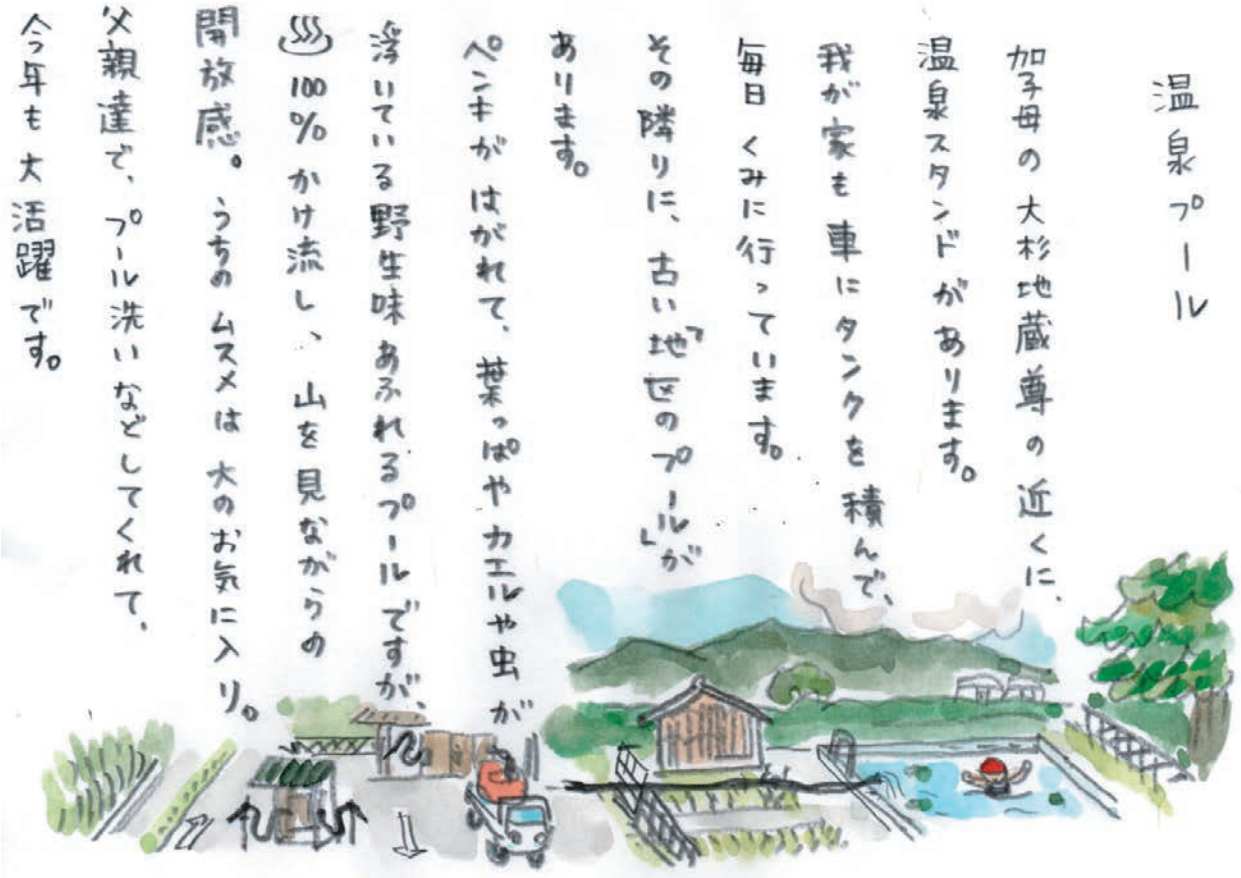 温泉プール
加子母の大杉地蔵尊の近くに、
温泉スタンドがあります。
我が家も車にタンクを積んで、
毎日くみに行っています。
その隣りに、古い「地区のプール」が
あります。
ペンキがはがれて、葉っぱやカエルや虫が
浮いている野生味あふれるプールですが、
♨100%かけ流し、山を見ながらの
開放感。うちのムスメは大のお気に入り。
父親達で、プール洗いなどしてくれて、
今年も大活躍です。